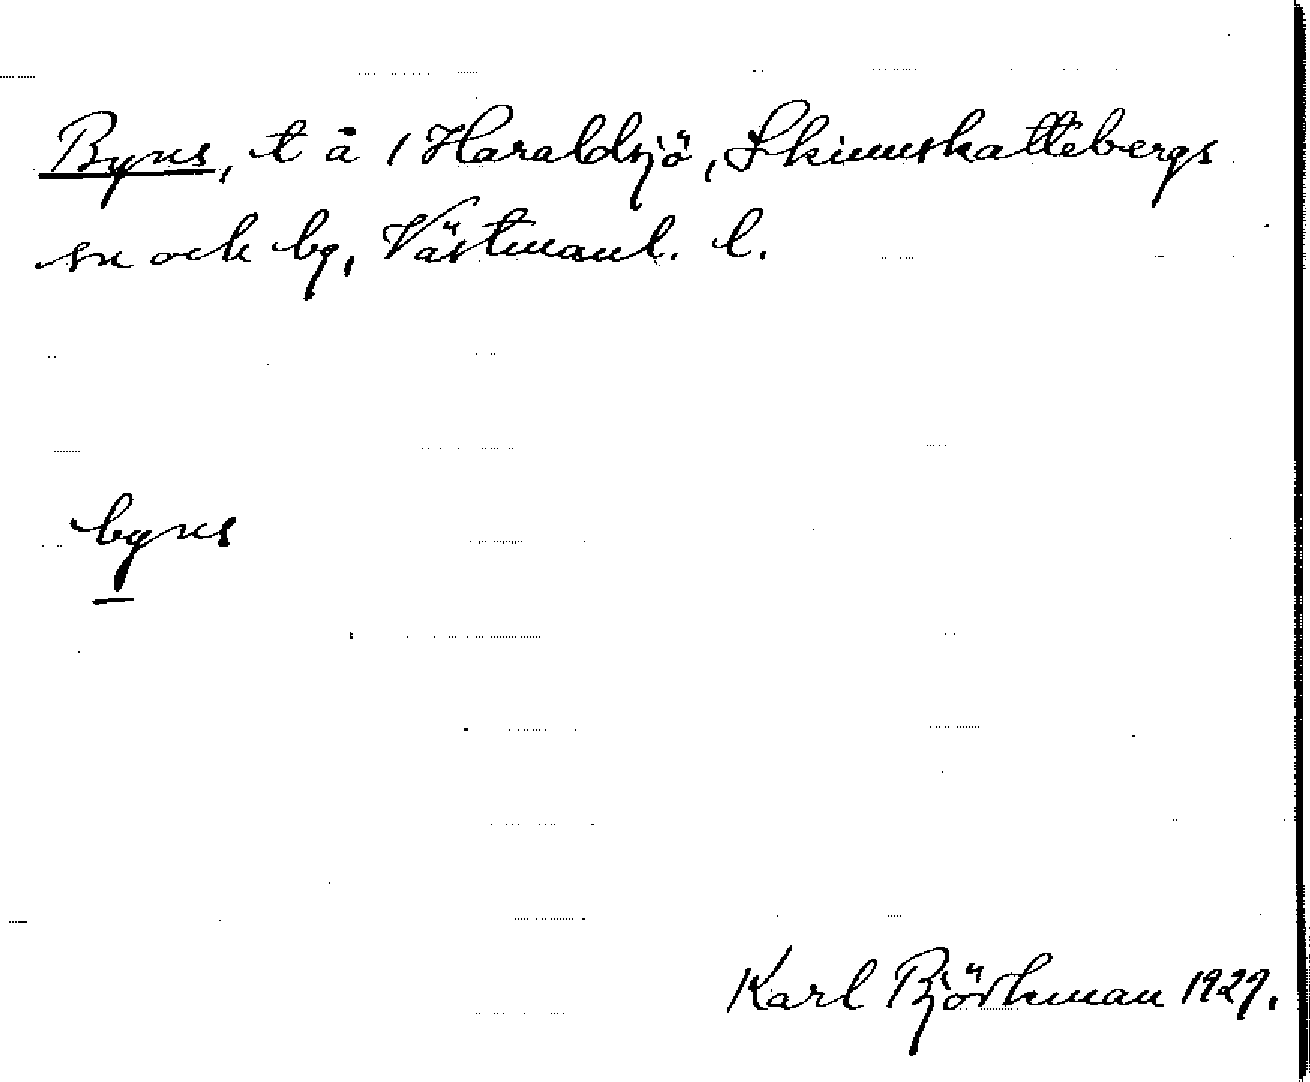 Byns, t å 1 Haraldsjö, Skinnskattebergs
sn och bg, Västmanl. l.
byns
Karl Björkman 1929.